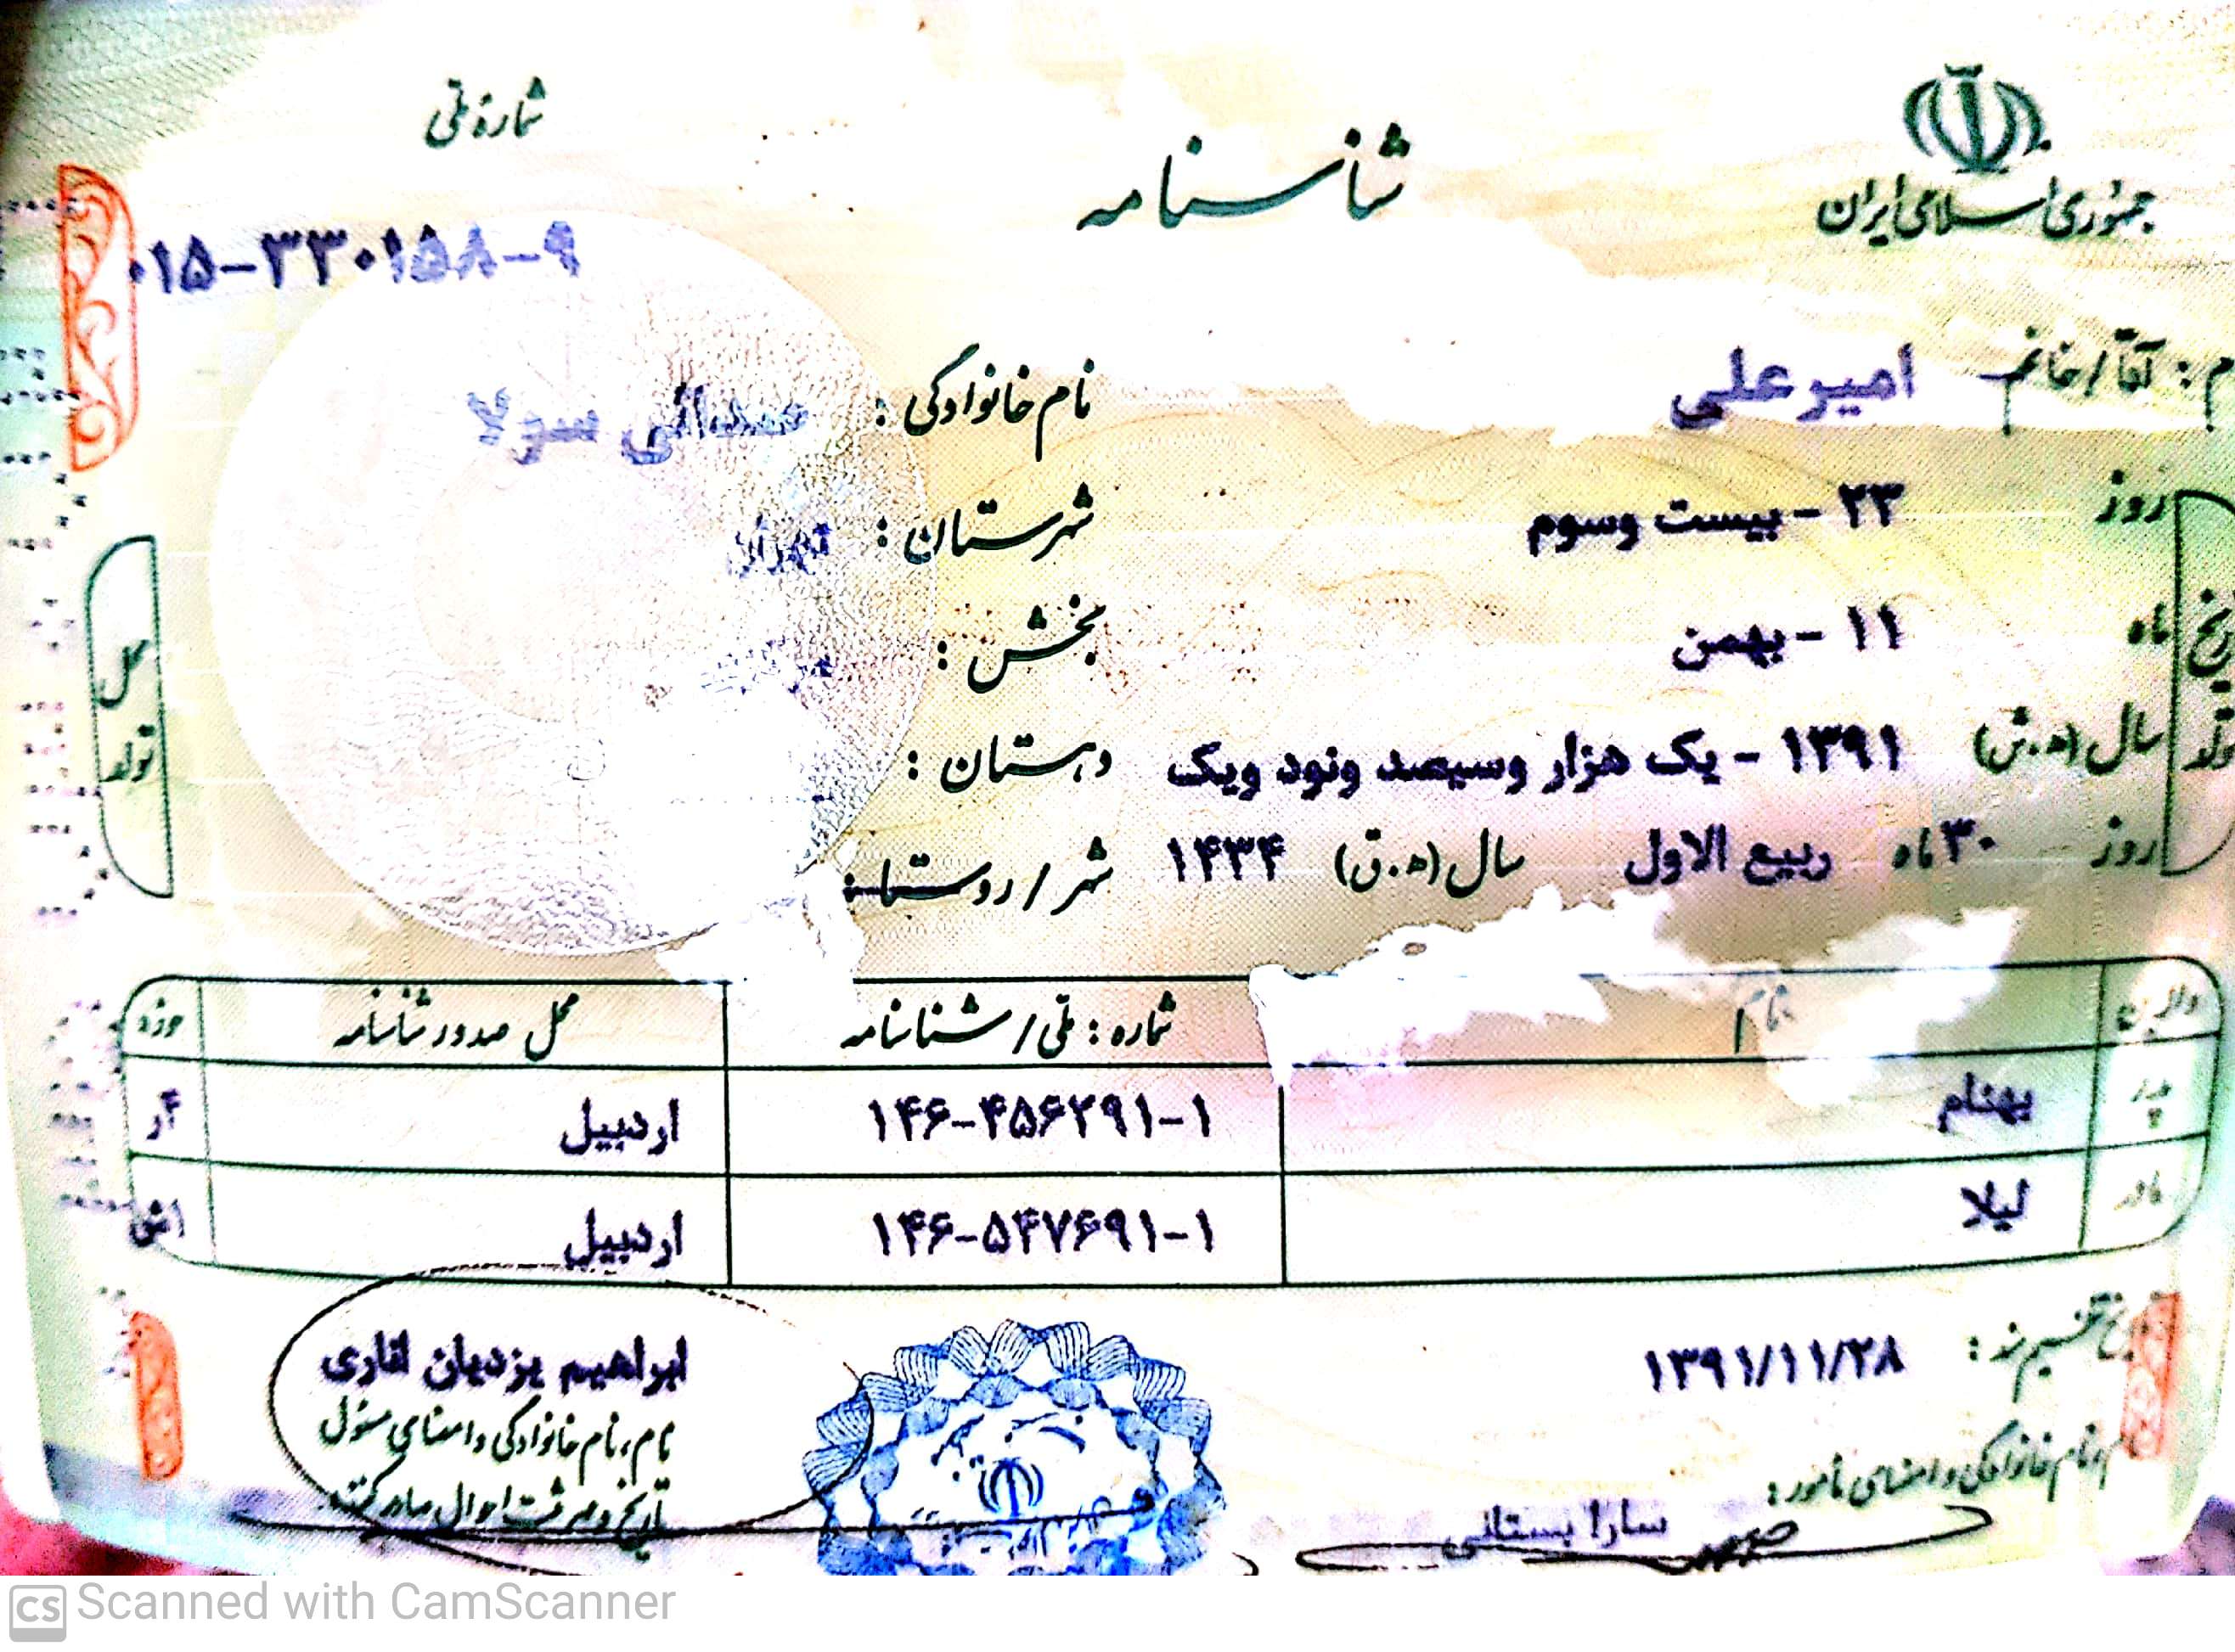 جمهوری اسلامی ایران
شناسنامه
شماره ملی
۰۱۵-۳۳۰۱۵۸-۹
م : آقا/خانم امیرعلی
نام خانوادگی : سولا
روز ۲۳ - بیست وسوم
شهرستان : تهران
ماه ۱۱ - بهمن
بخش :
سال (ه.ش) ۱۳۹۱ - یک هزار وسیصد ونود ویک
دهستان :
روز ۳۰ ماه ربیع الاول سال (ه.ق) ۱۴۳۴
شهر / روستا :
تولد
محل تولد
والدین نام شماره : ملی / شناسنامه محل صدور شناسنامه حوزه
پدر بهنام ۱۴۶-۴۵۶۲۹۱-۱ اردبیل ۴ر
مادر لیلا ۱۴۶-۵۴۷۶۹۱-۱ اردبیل ۱ش
تاریخ تنظیم سند : ۱۳۹۱/۱۱/۲۸
ابراهیم یزدیان اناری
نام، نام خانوادگی و امضای مسئول
نام، نام خانوادگی و امضای مأمور :
سارا بستانی
CS Scanned with CamScanner